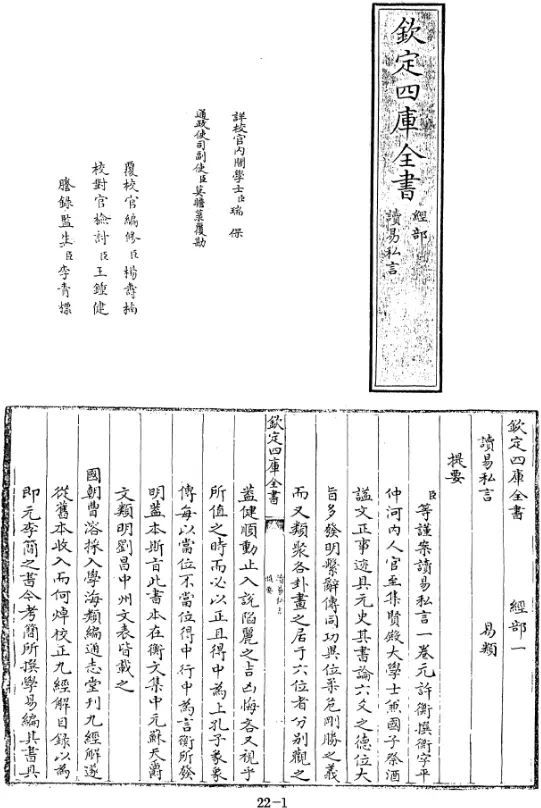 欽定四庫全書
經部
讀易私言
詳校官內閣學士臣瑞保
通政使司副使臣莫瞻菉覆勘
覆校官編修臣楊壽楠
校對官檢討臣王鍾健
謄錄監生臣李青標
欽定四庫全書 經部一
讀易私言 易類
提要
臣等謹案讀易私言一卷元許衡撰衡字平
仲河內人官至集賢殿大學士兼國子祭酒
諡文正事迹具元史其書論六爻之德位大
旨多發明繫辭傳同功異位柔危剛勝之義
而又類聚各卦畫之居于六位者分別觀之
欽定四庫全書
讀易私言
提要
蓋健順動止入說陷麗之吉凶悔吝又視乎
所值之時而必以正且得中為上孔子彖象
傳每以當位不當位得中行中為言衡所發
明蓋本斯旨此書本在衡文集中元蘇天爵
文類明劉昌中州文表皆載之
國朝曹溶採入學海類編通志堂刊九經解遂
從舊本收入而何焯校正九經解目錄以為
即元李簡之書今考簡所撰學易編其書具
22-1